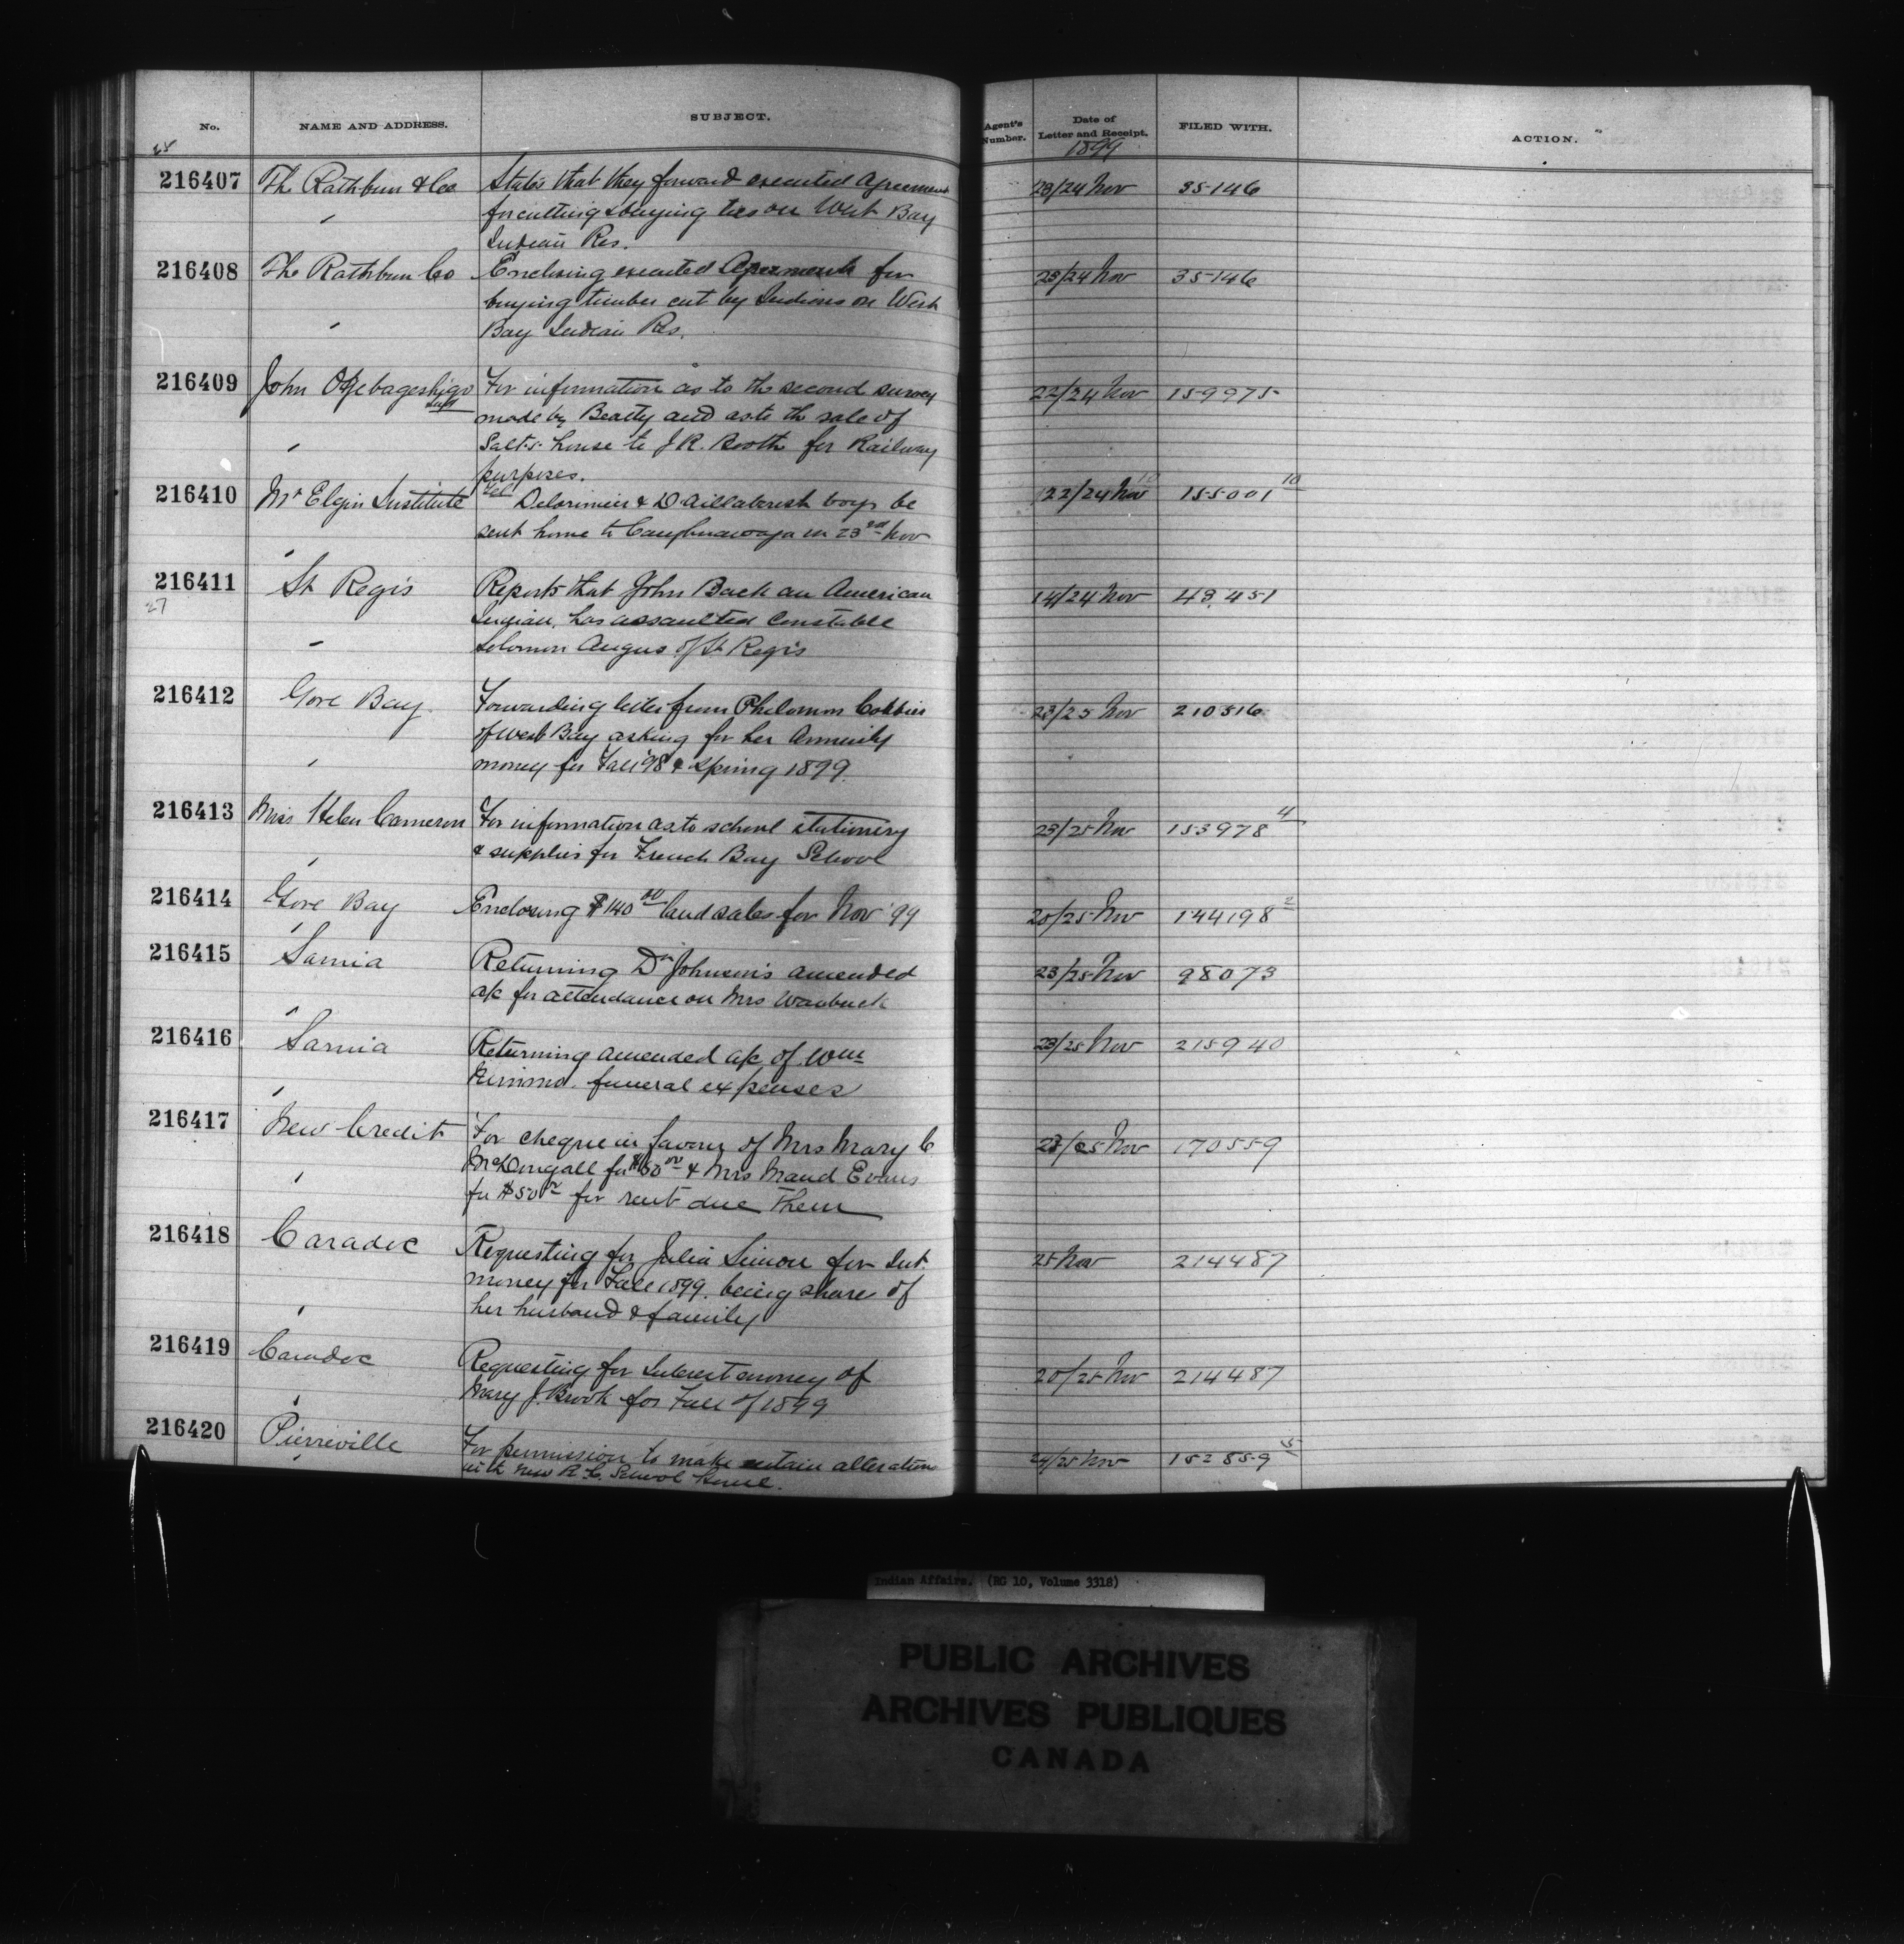 No. NAME AND ADDRESS. SUBJECT. Agent's Number. Date of Letter and Receipt. FILED WITH. ACTION.
1899
216407 The Rathbun & Co States that they forward executed Agreement 23/24 Nov 35146
for cutting & buying ties on West Bay
Indian Res.
216408 The Rathbun Co Enclosing executed Agreements for 23/24 Nov 35146
buying timber cut by Indians on West
Bay Indian Res.
216409 John For information as to the second survey 22/24 Nov 159975
made by Beatty and as to the sale of
Salt's house to J R. Booth for Railway
purposes.
216410 Mt Elgin Institute Delorimier & boys be 22/24 Nov 155001 10
sent home to Caughnawaga on 23rd Nov
216411 St Regis Reports that John Back an American 14/24 Nov 43,451
27
Indian, has assaulted Constable
Solomon Angus of St Regis
216412 Gore Bay. Forwarding letter from Philomon 23/25 Nov 210316
of West Bay asking for her Annuity
money for Fall '98 & Spring 1899.
216413 Miss Helen Cameron For information as to school stationery 23/25 Nov 153978 4
& supplies for French Bay School
216414 Gore Bay Enclosing $140 00 land sales for Nov '99 20/25 Nov 144198 2
216415 Sarnia Returning Dr Johnson's amended 23/25 Nov 98073
a/c for attendance on Mrs
216416 Sarnia Returning amended a/c of Wm 23/25 Nov 215940
Nimmo. funeral expenses
217417 New Credit For cheque in favour of Mrs Mary C 23/25 Nov 170559
McDougall for & Mrs Maud Evans
for $50 00 for rent due them
216418 Caradoc Requesting for Julia Simon for Int. 25 Nov 214487
money for Fall 1899. being share of
her husband & family
216419 Caradoc Requesting for Interest money of 20/25 Nov 214487
Mary J. Brook for Fall of 1899
216420 Pierreville For permission to make certain alterations 24/25 Nov 152859 5
with new R. C. School House.
Indian Affairs. (RG 10, Volume 3318)
PUBLIC ARCHIVES
ARCHIVES PUBLIQUES
CANADA